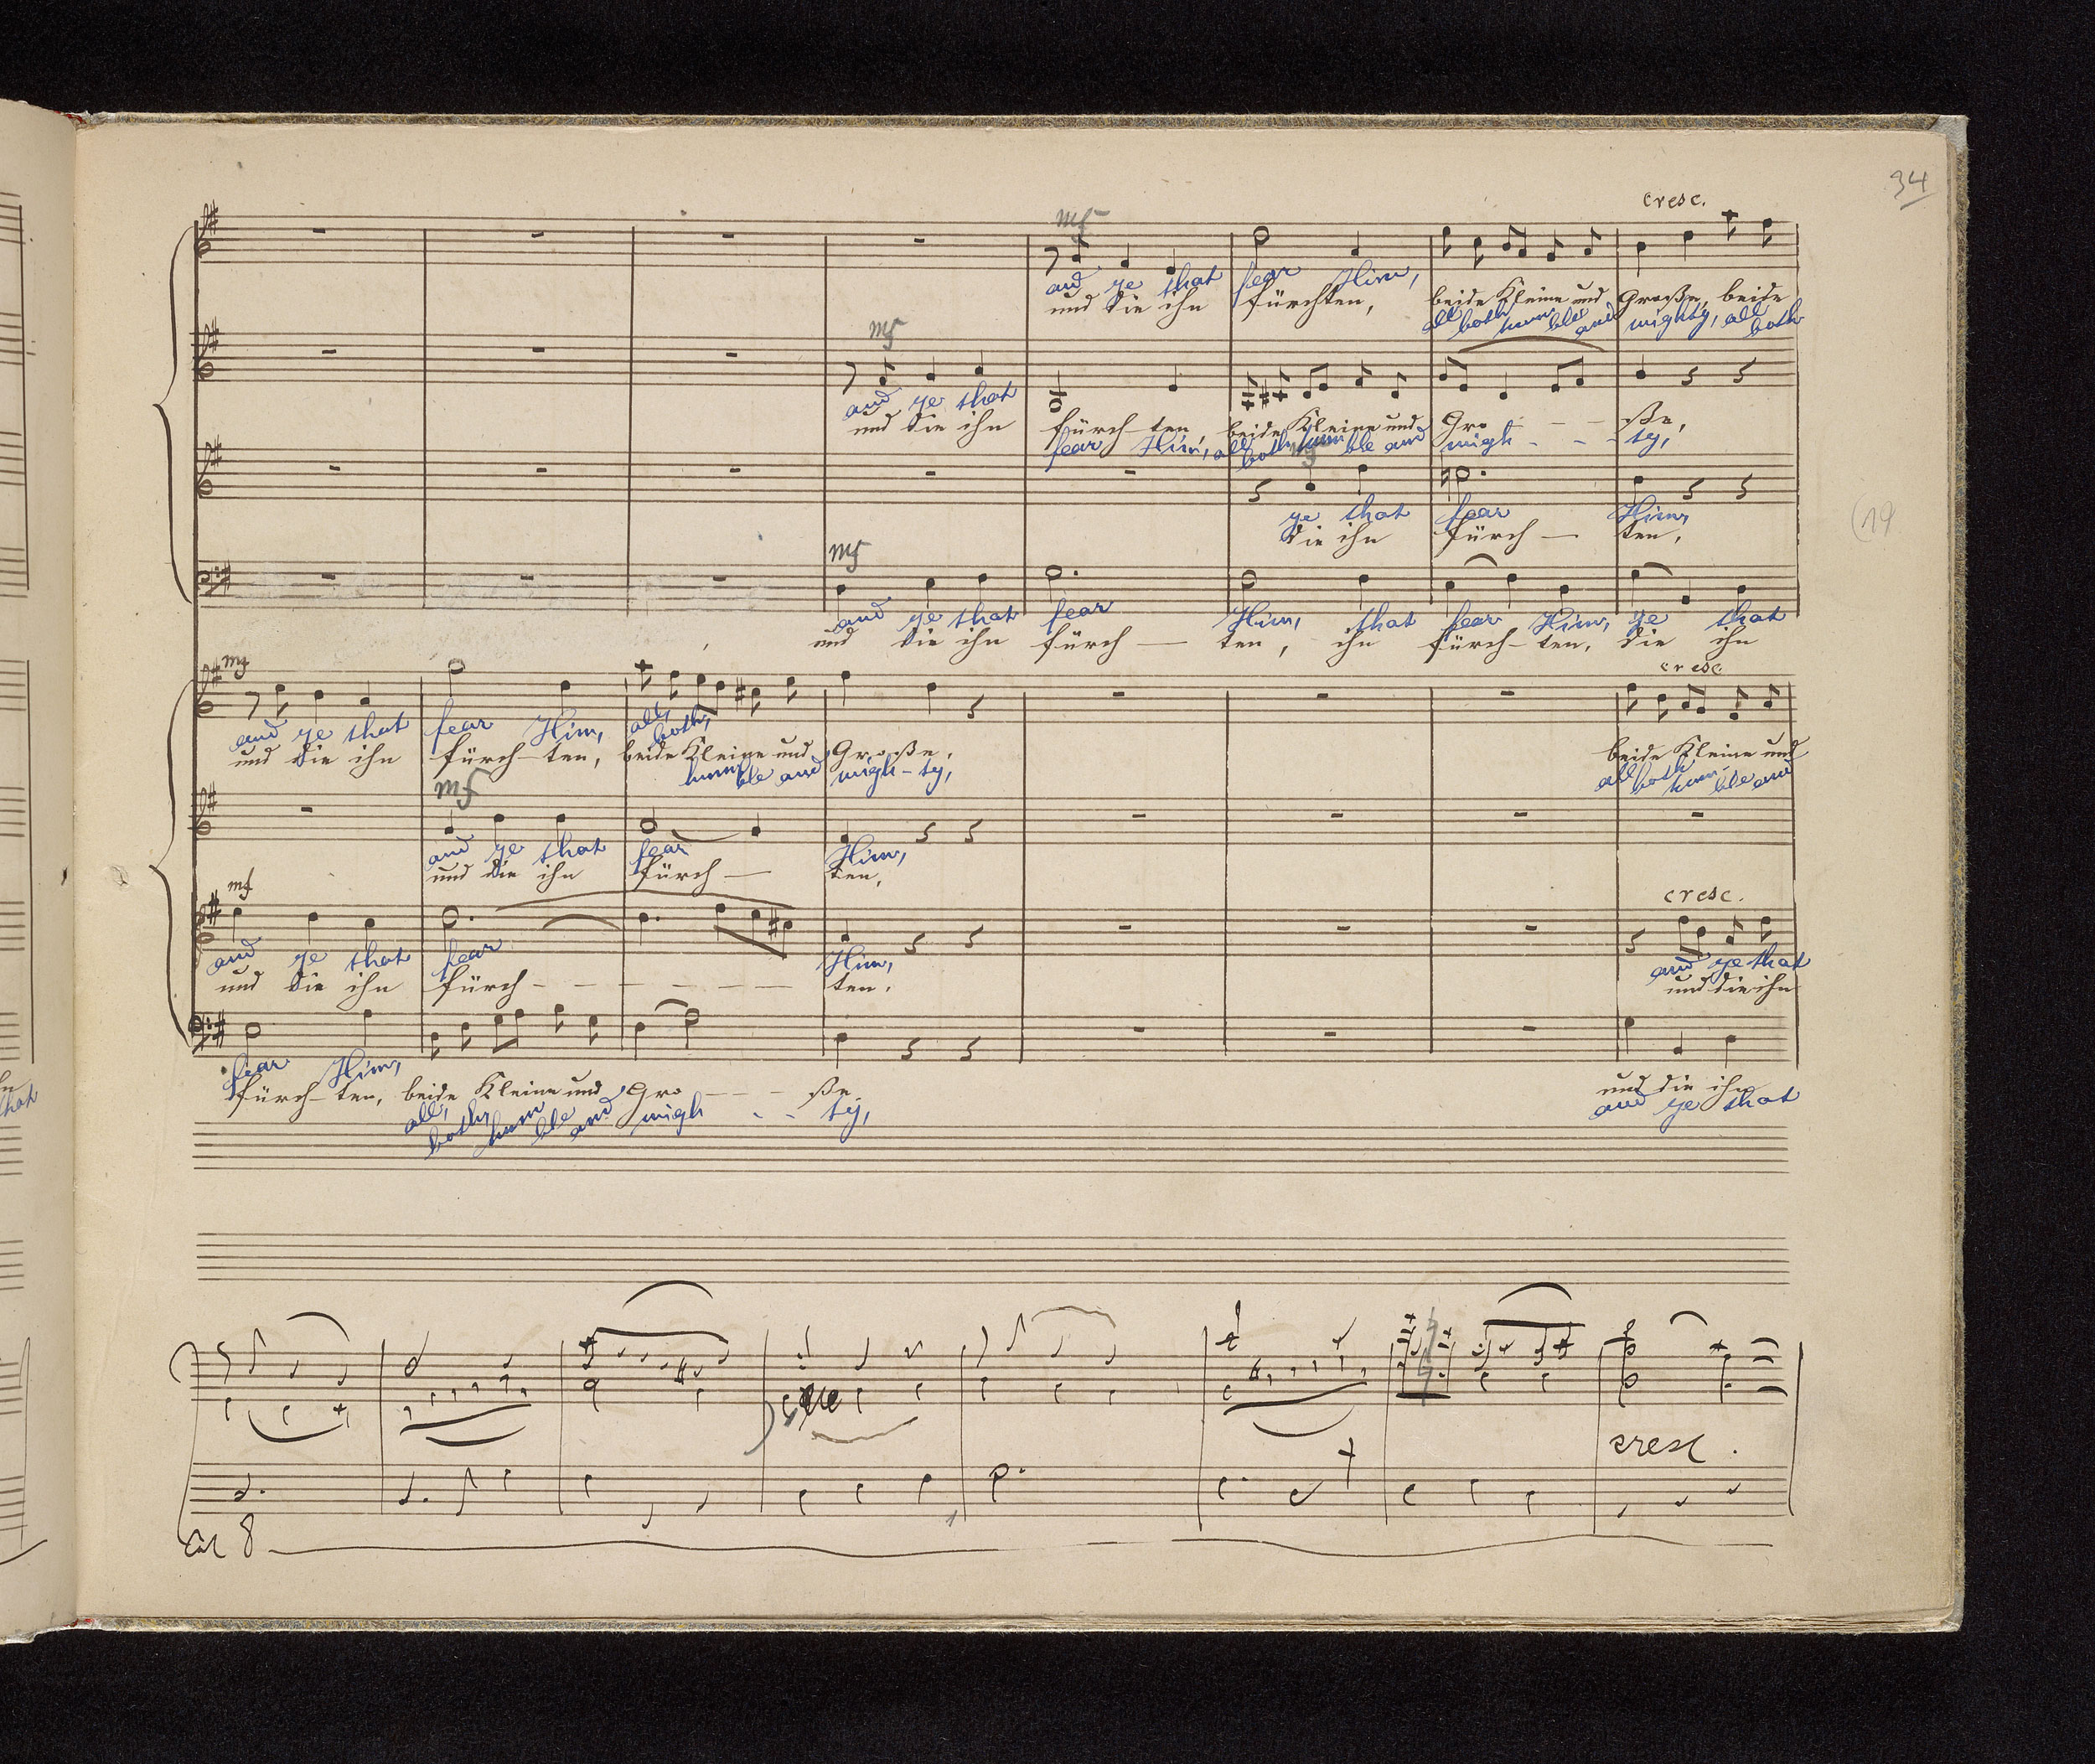 34
cresc.
mf
and ye that fear Him,
und die ihn fürchten, beide Kleine und Große, beide
all both hum ble and mighty, all both
mf
and ye that
und die ihn fürch-ten, beide Kleine und Gro - - - ße,
fear Him, all both, hum ble and migh - - - ty,
mf
ye that fear Him,
die ihn fürch — ten,
(19
mf
and ye that fear Him, that fear Him, ye that
und die ihn fürch — ten, ihn fürch-ten, die ihn
mf
cresc
and ye that fear Him, all, both,
und die ihn fürch-ten, beide Kleine und Große, beide Kleine und
humble and migh-ty, all both hum- ble and
mf
and ye that fear Him,
und die ihn fürch — ten,
mf
cresc.
and ye that fear Him, and ye that
und die ihn fürch - - - - - - - ten, und die ihn
fear Him,
fürch-ten, beide Kleine und Gro - - - ße und die ihn
all, both, hum ble and migh - - ty, and ye that
cresc.
8